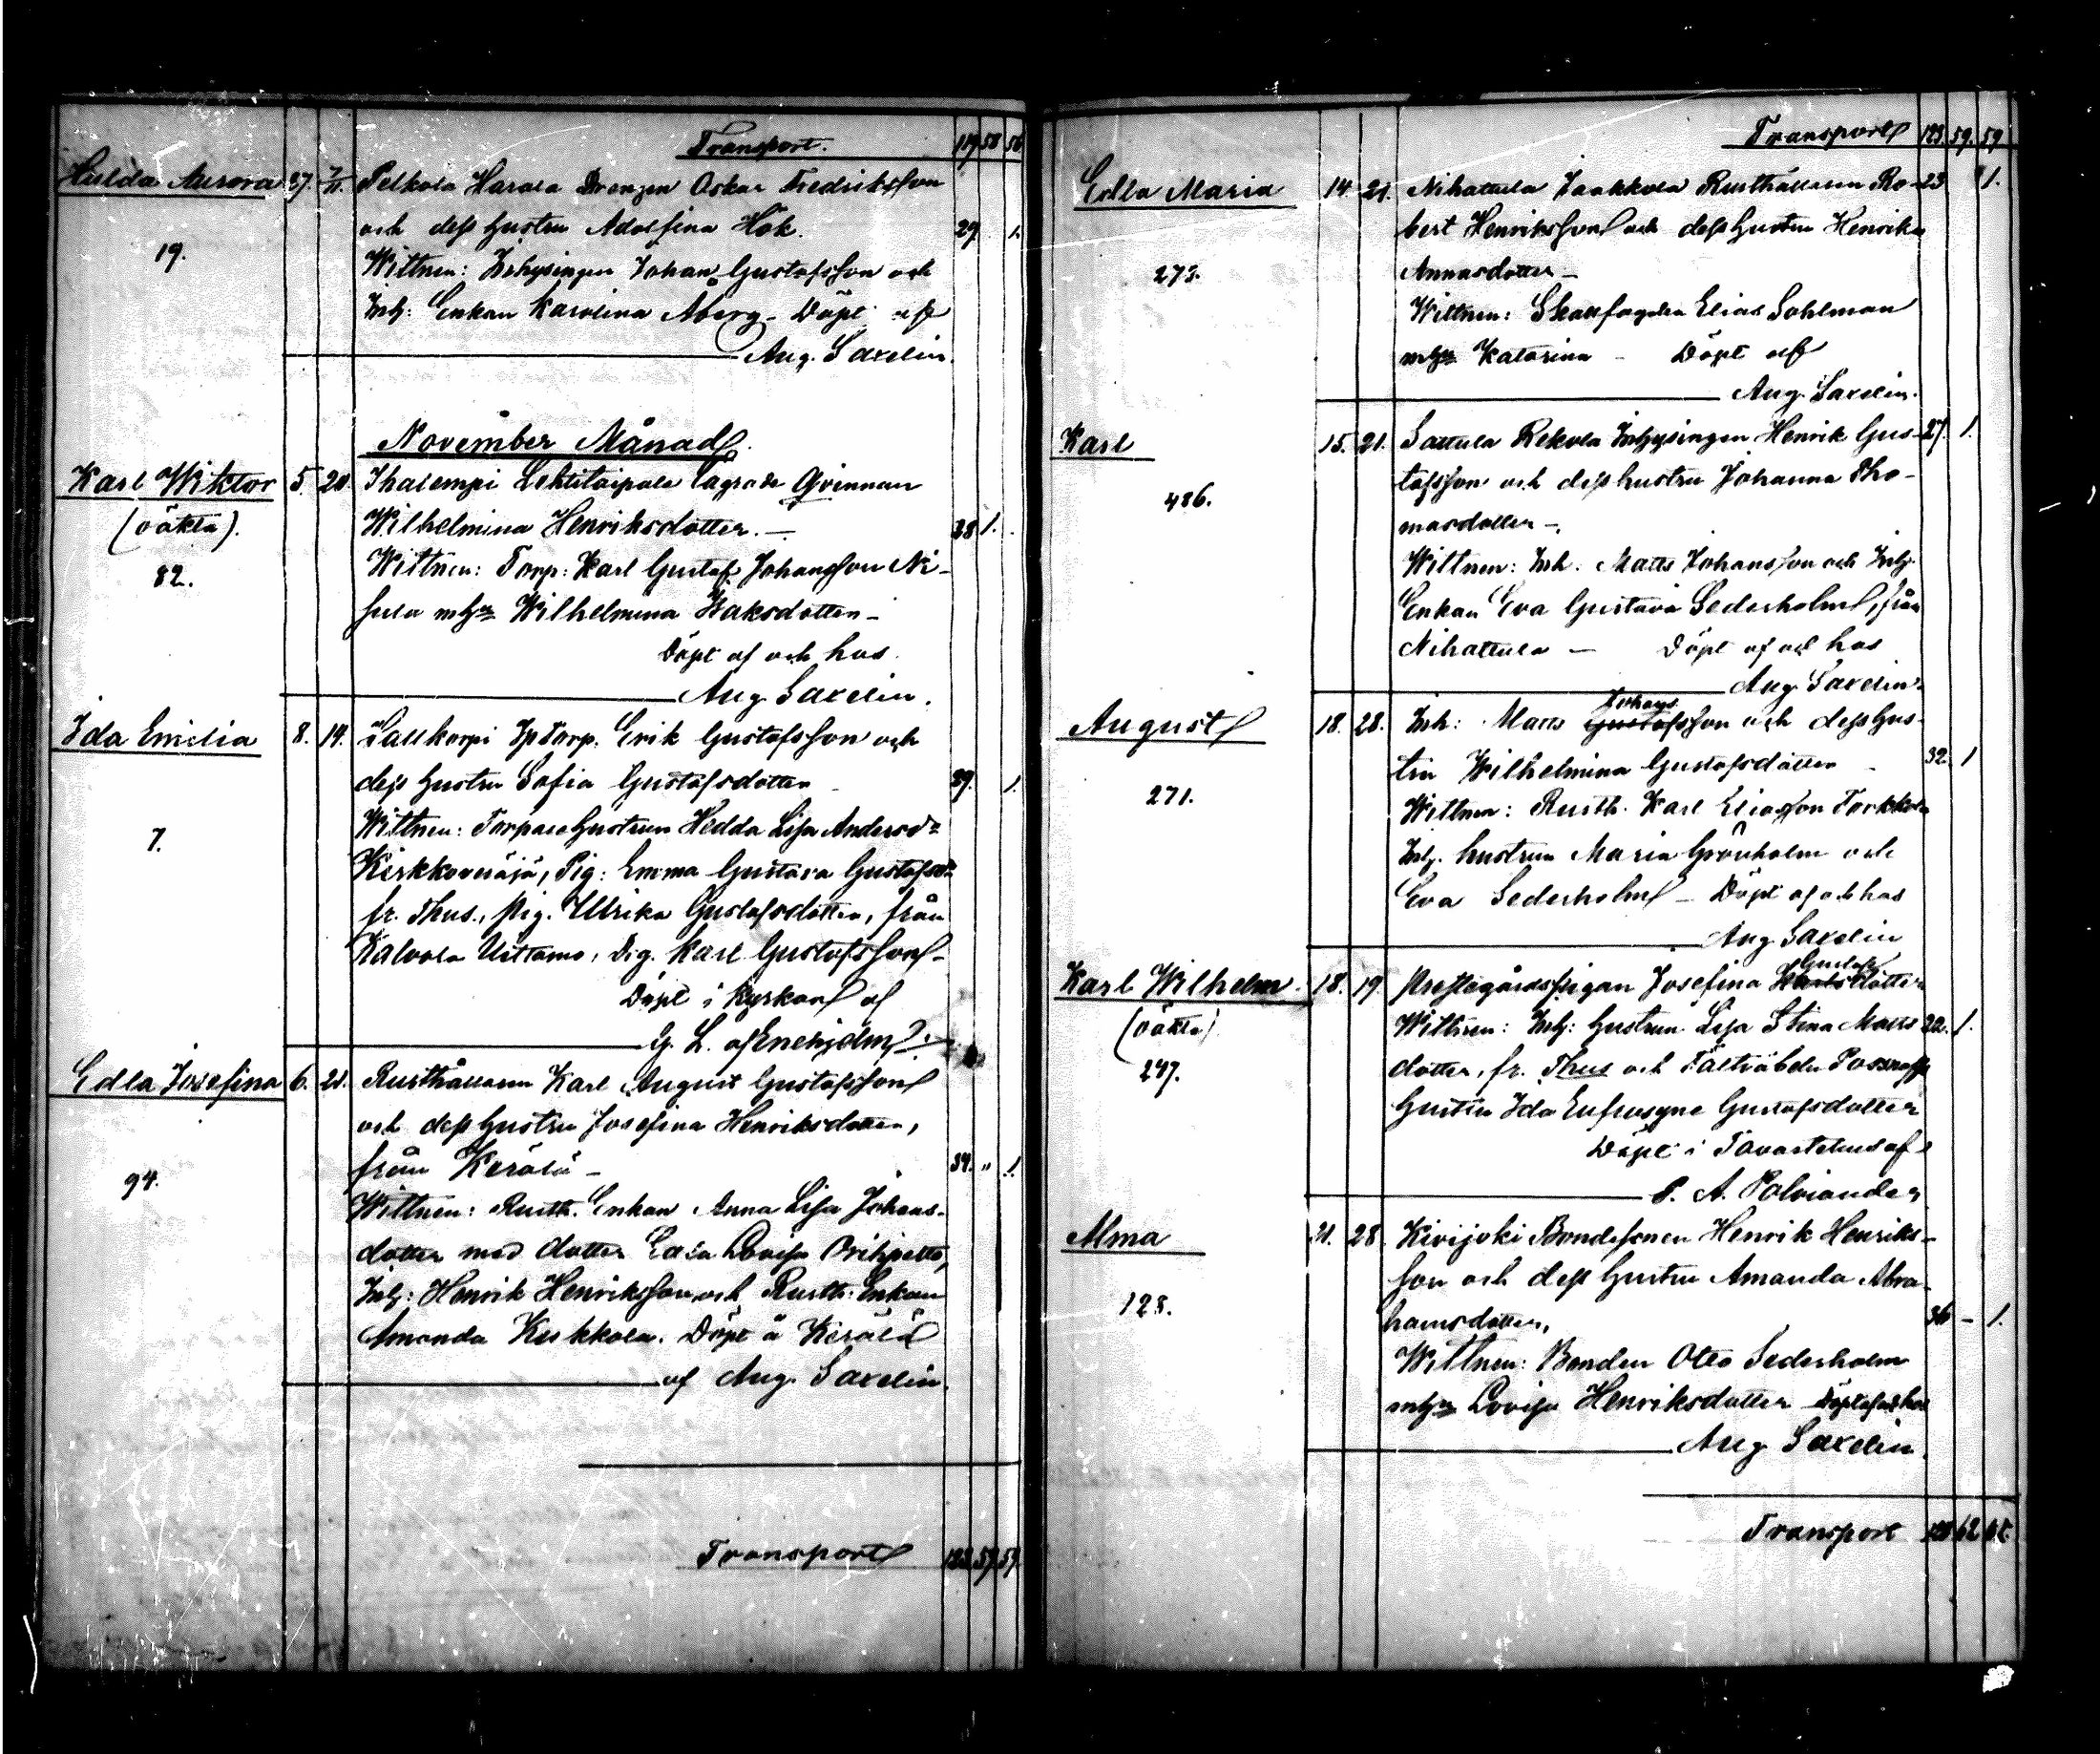 Transport. 119 58 56
Hulda Aurora 27. Pelkola Harala Drengen Oskar Fredriksson
och dess hustru Adolfina Hök. 29 1.
19.
Wittnen: Inhysingen Johan Gustafsson och
Inh: Enkan Karolina Åberg – Döpt af
Aug. Saxelin.
November Månad.
Karl Wiktor 5. 20. Ihalempi Lehtitaipale lagrade Qvinnan
(oäkta). Wilhelmina Henriksdotter. — 28 1.
82.
Wittnen: Torp: Karl Gustaf Johansson Ni-
hula mhu Wilhelmina Isaksdotter –
Döpt af och hos
Aug Saxelin.
Ida Emilia 8. 14. Torp. Erik Gustafsson och
dess hustru Sofia Gustafsdotter 39. 1.
7.
Wittnen: Torpare hustrun Hedda Lisa Andersdr
Pig: Emma Gustava Gustafsdr
fr. Thus., pig. Ulrika Gustafsdotter, från
Kalvola Uittamo, Dig. Karl Gustafsson –
Döpt i kyrkan af
G. L. af Enehjelm
Edla Josefina 6. 21. Rusthållaren Karl August Gustafsson
och dess hustru Josefina Henriksdotter,
från Kerälä – 34. " 1.
94.
Wittnen: Rusth. Enkan Anna Lisa Johans-
dotter med dotter Edla Lovisa
Inh: Henrik Henriksson och Rusth: Enkan
Amanda Kukkola. Döpt å Kerälä
af Aug. Saxelin.
Transport 122 59 59
Transport 123. 59. 59
Edla Maria 14. 21. Nihattula Jaakkola Rusthållaren Ro- 23 1.
bert Henriksson och dess hustru Henrika
Annasdotter –
273.
Wittnen: Skallfogden Elias Sohlman
mhu Katarina – Döpt af
Aug. Saxelin.
Karl 15. 21. Sattula Rekola Inhysingen Henrik Gus- 27. 1.
tafsson och dess hustru Johanna Tho-
486.
masdotter –
Wittnen: Inh. Matts Johansson och Inh.
Enkan Eva Gustava Sederholm, från
Nihattula — Döpt af och hos
Aug Saxelin.
Johans
August 18. 28. Inh: Matts Gustafsson och dess hus-
tru Wilhelmina Gustafsdotter – 32. 1
271.
Wittnen: Rusth. Karl Eliasson
Inh. hustrun Maria Grönholm och
Eva Sederholm – Döpt af och hos
Aug Saxelin
Gustafs
Karl Wilhelm 18. 19. Prestegårdspigan Josefina dotter
(oäkta) Wittnen: Inh: hustrun Lisa Stina Matts 22. 1.
247.
dotter, fr. Thus och
hustru Ida Eufrosyne Gustafsdotter
Döpt i Tavastehus af
P. A. Polviander
Alma 21. 28. Kivijoki Bondesonen Henrik Henriks-
son och dess hustru Amanda Abra-
128.
hamsdotter, 36 – 1.
Wittnen: Bonden Otto Sederholm
mhu Lovisa Henriksdotter Döpt af och hos
Aug Saxelin.
Transport 128 62 61.